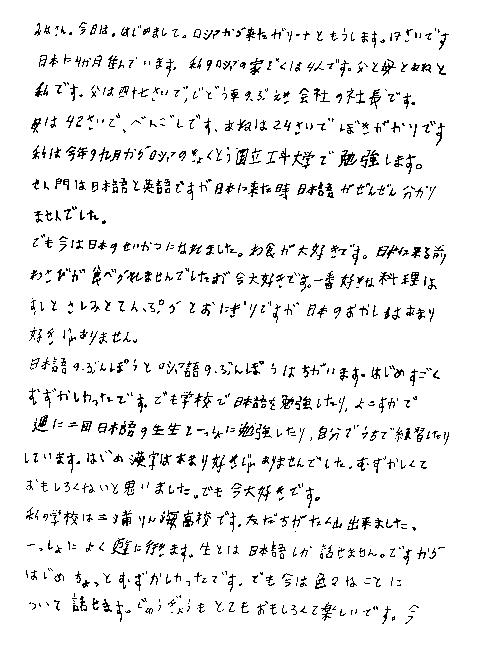 みなさん。今日は。はじめまして。ロシアから来たガリーナともうします。17さいです
日本に4か月住んでいます。私のロシアの家ぞくは4人です。父と母とあねと
私です。父は四十七さいで、じどう車のぶひん会社の社長です。
母は42さいで、べんごしです、あねは24さいでぼきがかりです
私は今年の九月からロシアのきょくとう国立工科大学で勉強します。
せん門は日本語と英語ですが日本に来た時日本語がぜんぜん分かり
ませんでした。
でも今は日本のせいかつになれました。わ食が大好きです。日本に来る前
わさびが食べられませんでしたが今大好きです。一番好きな料理は
すしとさしみとてんぷらとおにぎりですが日本のおかしはあまり
好きじゃありません。
日本語のぶんぽうとロシア語のぶんぽうはちがいます。はじめすごく
むずかしかったです。でも学校で日本語を勉強したり、よこすかで
週に二回日本語の先生といっしょに勉強したり、自分でうちで練習したり
しています。はじめ漢字はあまり好きじゃありませんでした。むずかしくて
おもしろくないと思いました。でも今大好きです。
私の学校は三浦りん海高校です。友だちがたくさん出来ました、
いっしょによく遊に行きます。生とは日本語しか話せません。ですから
はじめちょっとむずかしかったです。でも今は色々なことに
ついて話せます。じゅうぎょうもとてもおもしろくて楽しいです。今